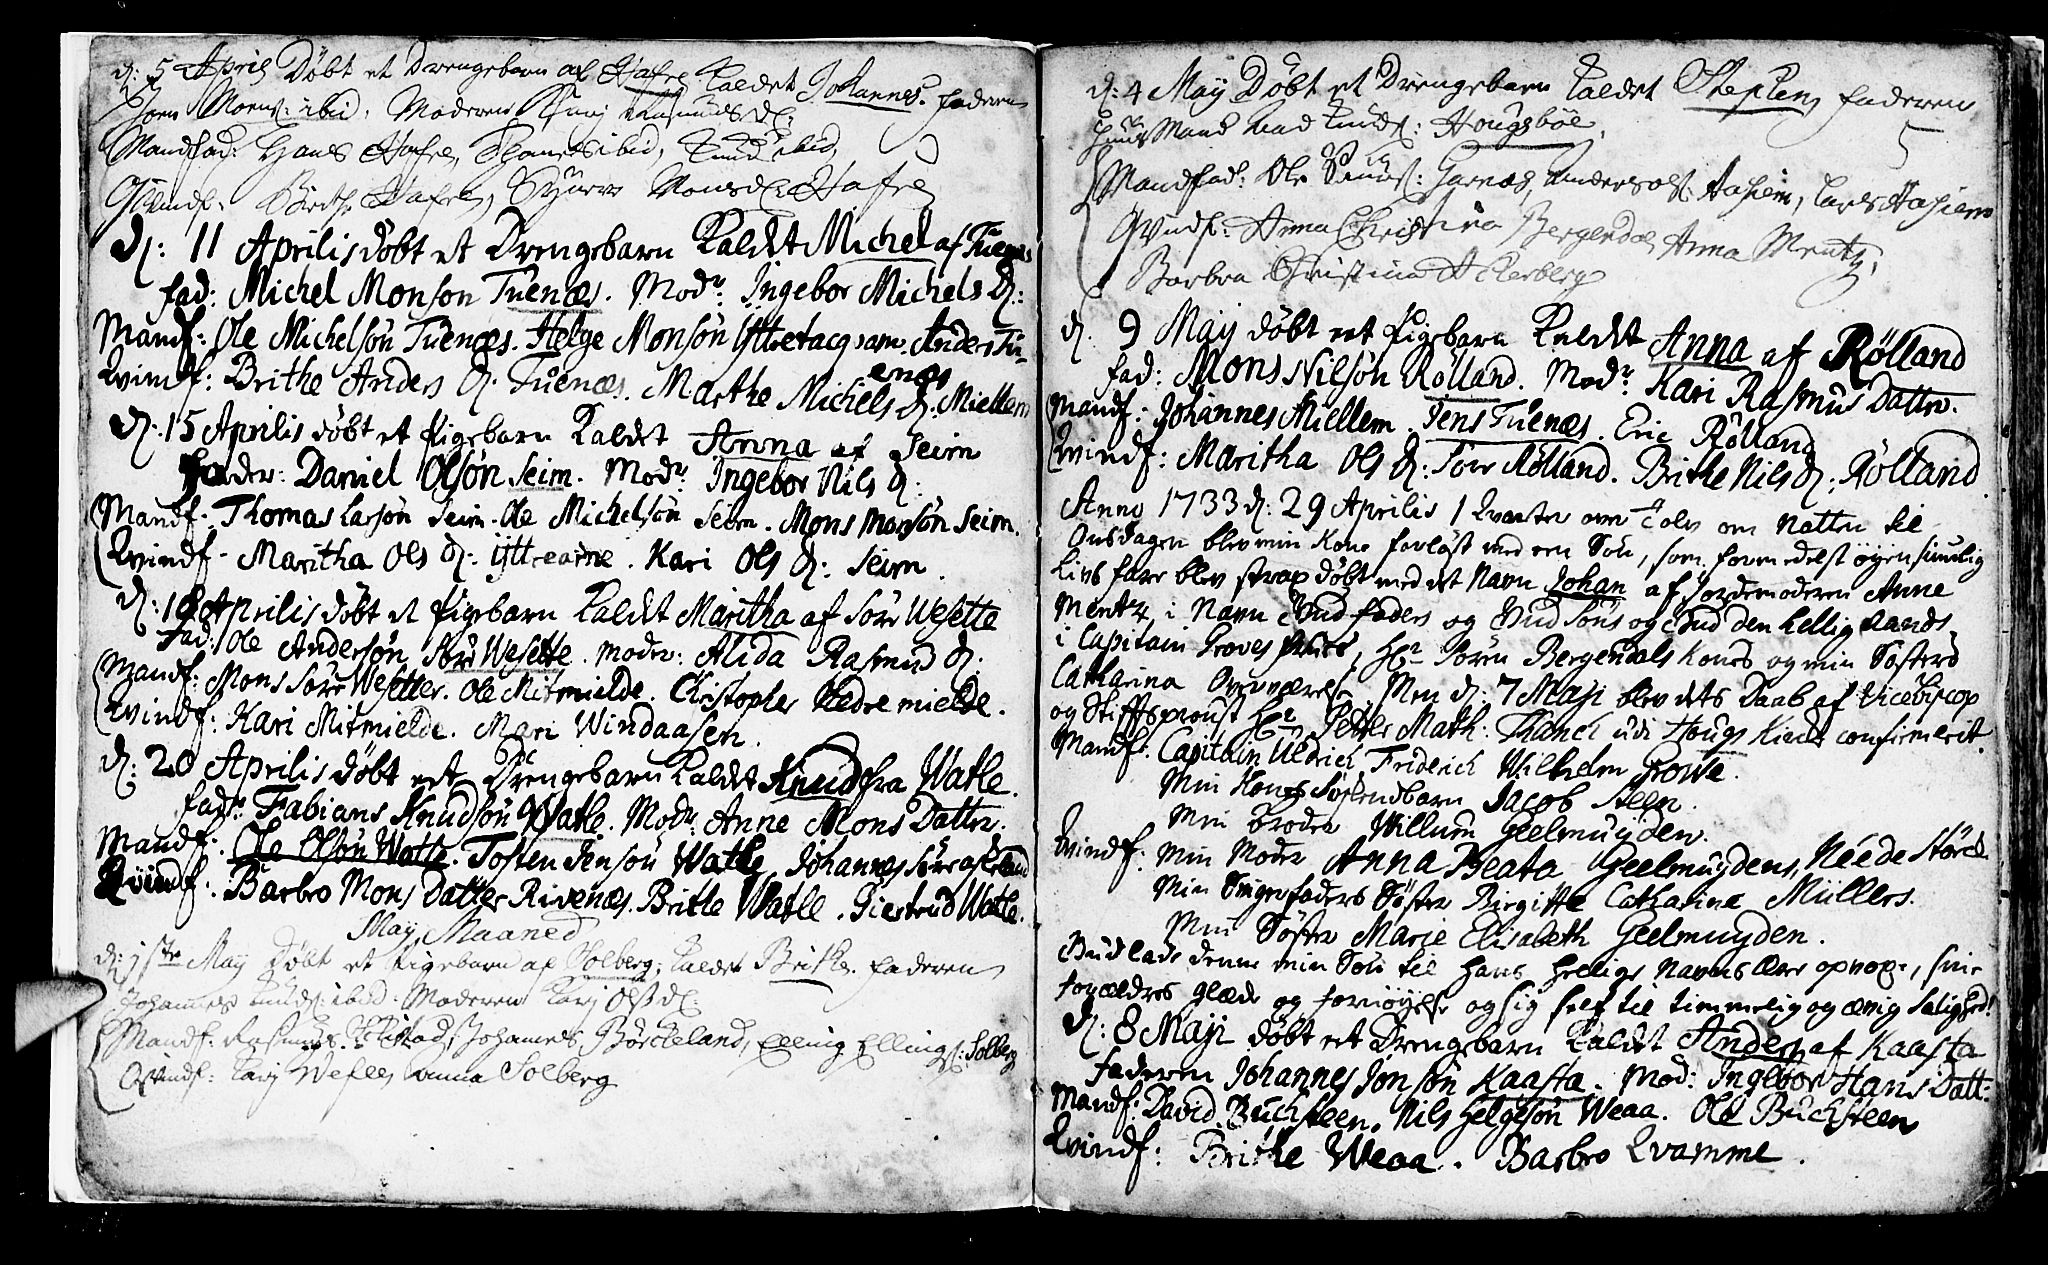 d: 5 April Døbt et Drengebarn af Hafre kaldet Johannes. faderen
Joen Moens: ibid. Moderen Rasmusd:
Mandfad: Hans Hafre, ibid, Knud ibid,
Qvindf: Brithe Hafre, Monsd: Hafre
d: 11 Aprilis døbt et Drengebarn kaldet Michel af Tuenæs
fad: Michel Monson Tuenæs. Modr: Ingebor Michels D:
Mandf: Ole Michelsøn Tuenæs. Helge Monsøn Anders Tu-
enæs
Kvindf: Brithe Anders D. Tuenæs. Marthe Michels D: Miellem
d: 15 Aprilis døbt et Pigebarn kaldet Anna af Seim
Fader: Daniel Olsøn Seim. Modr: Ingebor Nils D:
Mandf: Thomas Larsøn Seim. Ole Michelsøn Seim. Mons Monsøn Seim.
Kvindf- Maritha Ols D: Yttrearne. Kari Ols D: Seim.
d: 19 Aprilis døbt et Pigebarn kaldet Maritha af Søre Wesette
Fad: Ole Andersøn Søre Wesette. Moder: Alida Rasmus D:
Mandf: Mons Søre Wesette. Ole Mitmielde. Christopher Nedre mielde.
Kvindf: Kari Mitmielde. Mari Windaasen.
d: 20 Aprilis døbt et Drengebarn kaldet Knud fra Watle.
fadr: Fabians Knudsøn Watle. Modr: Anne Mons Datter.
Mandf: Ole Olsøn Watle. Tosten Jensøn Watle. Johannes
Kvindf: Barbro Mons Datter Rivenæs. Brithe Watle. Giertrud Watle.
May Maaned
d: 1ste May Døbt et Pigebarn af Solberg, kaldet Brithe. faderen
Johannes Knuds: ibid. Moderen Karj Olsd:
Mandf: Rasmus Johannes Børcheland, Elling Ellings: Solberg
Qvindf: Karj Anna Solberg
d: 4 May Døbt et Drengebarn kaldet Stephen, faderen
Huusmand Knuds: Hougsbøe.
5
Mandfad: Ole Garnæs, Anders ols: Aasheim, Lars Aasheim
Qvindf: Anna Christina Bergendal, Anna Mentz,
Barbra Christina Akerberg
d. 9 May døbt et Pigebarn kaldet Anna af Rølland
fad: Mons Nilsøn Rølland. Modr: Kari Rasmus Datter.
Mandf: Johannes Miellem. Jens Tuenæs. Eric Rølland
Kvindf: Maritha Ols D: Rølland. Brithe Nils D: Rølland
Anno 1733 d: 29 Aprilis 1 Kvarter over Tolv om Natten til
Onsdagen blev min Kone forløst med en Søn, som formedelst øyensiunlig
Livs fare blev strax døbt med et Navn Johan af Jordemoderen Anne
Mentz, i Navn Gud faders og Gud Søns og Gud den hellig Aands
i Capitain Groves Hr. Søren Bergendals Kones og min Søsters
Catharina Overværelse. Men d: 7 Maji blev dets Daab af Vicebiscop
og Stiftsproust Hr. Petter Math: udi Hougs Kirke confirmerit.
Mandf: Capitain Uldrich Friderich Wilhelm Growe.
Min Kones Søskendbarn Jacob Steen.
Min Broder Willum Geelmuyden.
Kvindf: Min Moder Anna Beata Geelmuydens, Née de Störck
Min Svigerfaders Søster Birgitte Catharine Müllers.
Min Søster Marie Elisabeth Geelmuyden.
Gud lade denne min Søn til Hans hellige Navns ære opvoxe, sine
forældres glæde og fornøyelse og sig self til timmelig og ævig Salighed!
d: 8 Maji døbt et Drengebarn kaldet Anders af Kaasta
Faderen Johannes Jonsøn Kaasta. Mod: Ingebor Hans Datt:
Mandf: David Buchsteen. Nils Helgesøn Weaa. Ole Buchsteen
Kvindf: Brithe Weaa. Barbro Kvamme.